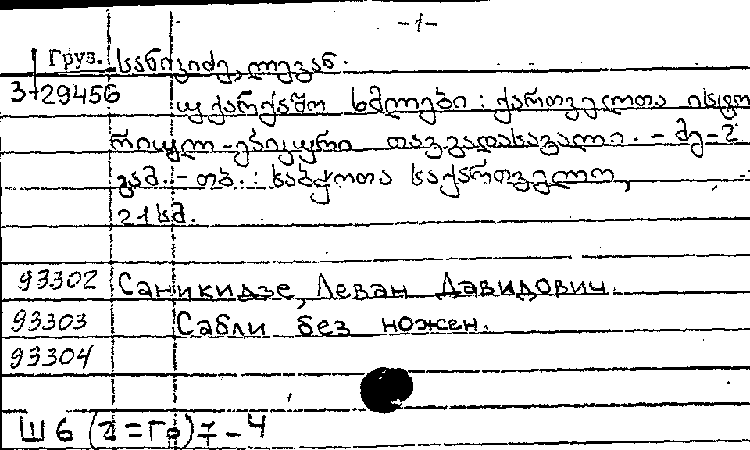 -1-
Груз. სანიკიძე, ლევან.
3-29456
უქარქაშო ხმლები : ქართველთა ისტო
რიულ-ეპიკური თავგადასავალი. - მე-2
გამ. - თბ. : საბჭოთა საქართველო,
21 სმ.
93302 Саникидзе, Леван Давидович.
93303 Сабли без ножен.
93304
Ш6(2=Гр)7-4